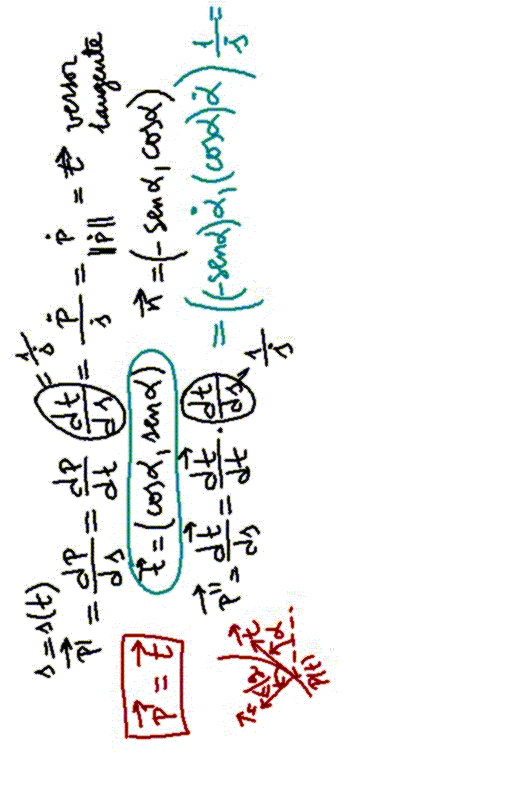 s = s(t)
P⃗' = dP/ds = dP/dt (dt/ds) = Ṗ/ṡ = Ṗ/||Ṗ|| = t⃗ versor tangente
= 1/ṡ
P⃗ = t⃗
t⃗ = (cosα, senα) n⃗ = (-senα, cosα)
P⃗'' = dt⃗/ds = dt⃗/dt · (dt/ds) = ((-senα)α̇, (cosα)α̇) 1/ṡ =
1/ṡ
n⃗ t⃗
α
P(t)